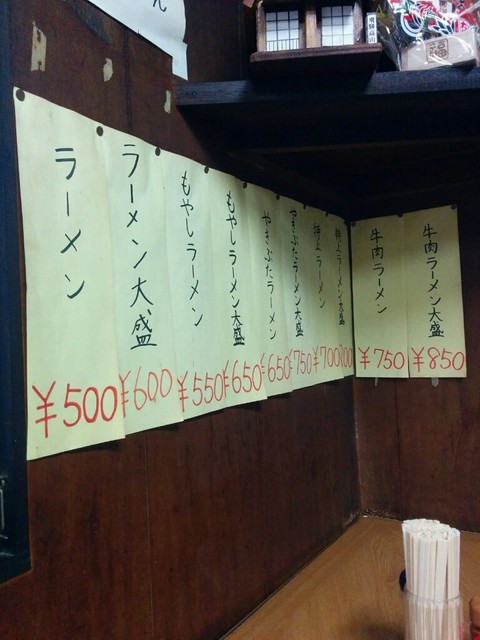 ん
福
ラーメン
¥500
ラーメン大盛
¥600
もやしラーメン
¥550
もやしラーメン大盛
¥650
やきぶたラーメン
¥650
やきぶたラーメン大盛
¥750
特上ラーメン
¥700
特上ラーメン大盛
牛肉ラーメン
¥750
牛肉ラーメン大盛
¥850